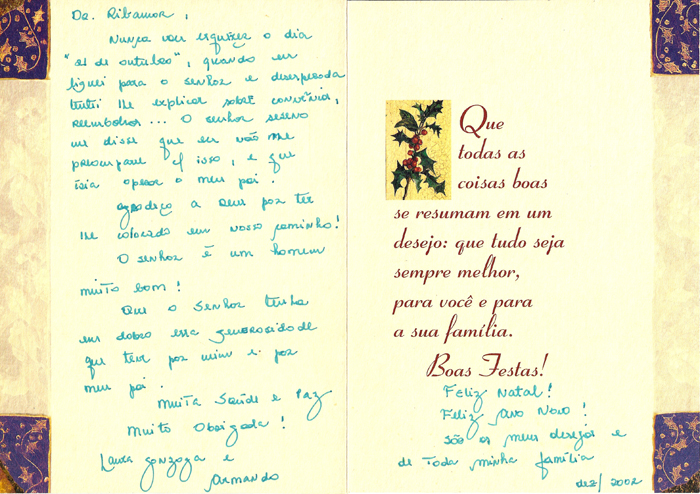 Dr. Ribamar,
Nunca vou esquecer o dia
"21 de outubro", quando eu
liguei para o senhor e desesperada
tentei lhe explicar sobre convênio,
reembolso... O senhor sereno
me disse que eu não me
preocupasse c/ isso, e que
iria operar o meu pai.
Agradeço a Deus por ter
lhe colocado em nosso caminho!
O senhor é um homem
muito bom!
Que o Senhor tenha
em dobro essa generosidade
que teve por mim e por
meu pai.
Muita Saúde e Paz
Muito Obrigada!
Laura Gonzaga e
Armando
Que
todas as
coisas boas
se resumam em um
desejo: que tudo seja
sempre melhor,
para você e para
a sua família.
Boas Festas!
Feliz Natal!
Feliz Ano Novo!
São os meus desejos e
de toda minha família
dez/2002